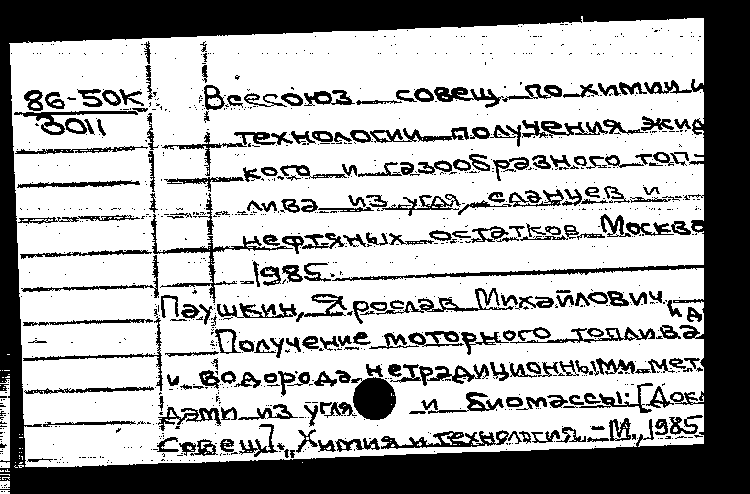 86-50К
3011
Всесоюз. совещ. по химии и
технологии получения жид
кого и газообразного топ-
лива из угля, сланцев и
нефтяных остатков Москва
1985.
Паушкин, Ярослав Михайлович и др
Получение моторного топлива
и водорода нетрадиционными мето
дами из угля и биомассы: [Докл
совещ.] „Химия и технология. - М., 1985